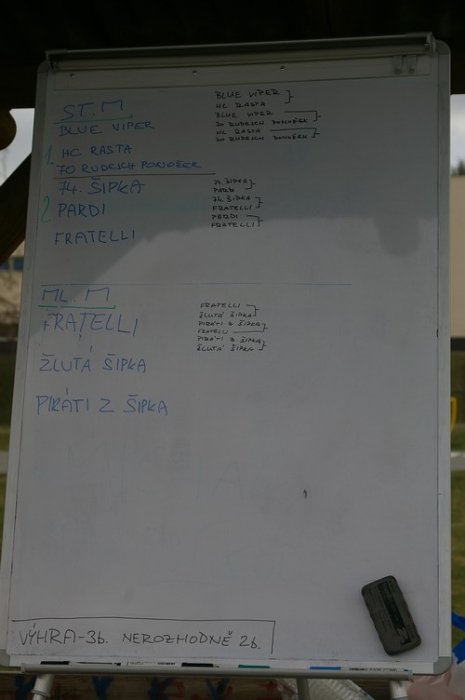 ST. M
BLUE VIPER
1. HC RASTA
70 RUDEJCH PONOŽEK
74. ŠIPKA
2 PARDI
FRATELLI
BLUE VIPER
HC RASTA
BLUE VIPER
70 RUDEJCH PONOŽEK
HC RASTA
70 RUDEJCH PONOŽEK
74. ŠIPKA
PARDI
74. ŠIPKA
FRATELLI
PARDI
FRATELLI
ML. M
FRATELLI
ŽLUTÁ ŠIPKA
PIRÁTI Z ŠIPKA
FRATELLI
ŽLUTÁ ŠIPKA
PIRÁTI Z ŠIPKA
FRATELLI
PIRÁTI Z ŠIPKA
ŽLUTÁ ŠIPKA
VÝHRA-3b. NEROZHODNĚ 2b.